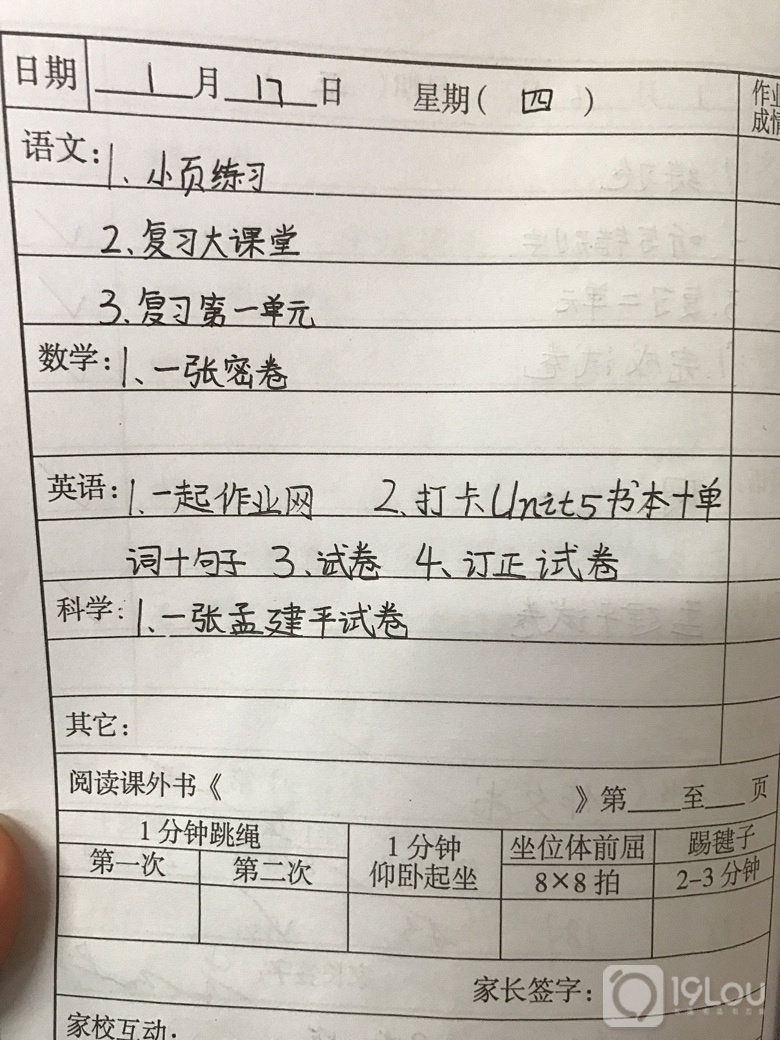 日期 1月17日 星期(四) 作业
成情
语文:1、小页练习
2、复习大课堂
3、复习第一单元
数学:1、一张密卷
英语:1、一起作业网 2、打卡Unit5书本+单
词+句子 3、试卷 4、订正试卷
科学:1、一张孟建平试卷
其它:
阅读课外书《 》第___至___页
1分钟跳绳 1分钟 坐位体前屈 踢毽子
第一次 第二次 仰卧起坐 8×8拍 2-3分钟
家长签字:
家校互动:
19Lou